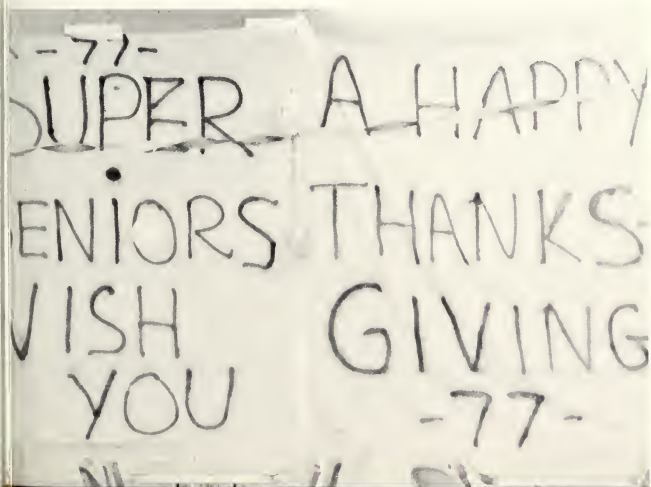 -77-
SUPER
SENIORS
WISH
YOU
A HAPPY
THANKS-
GIVING
-77-